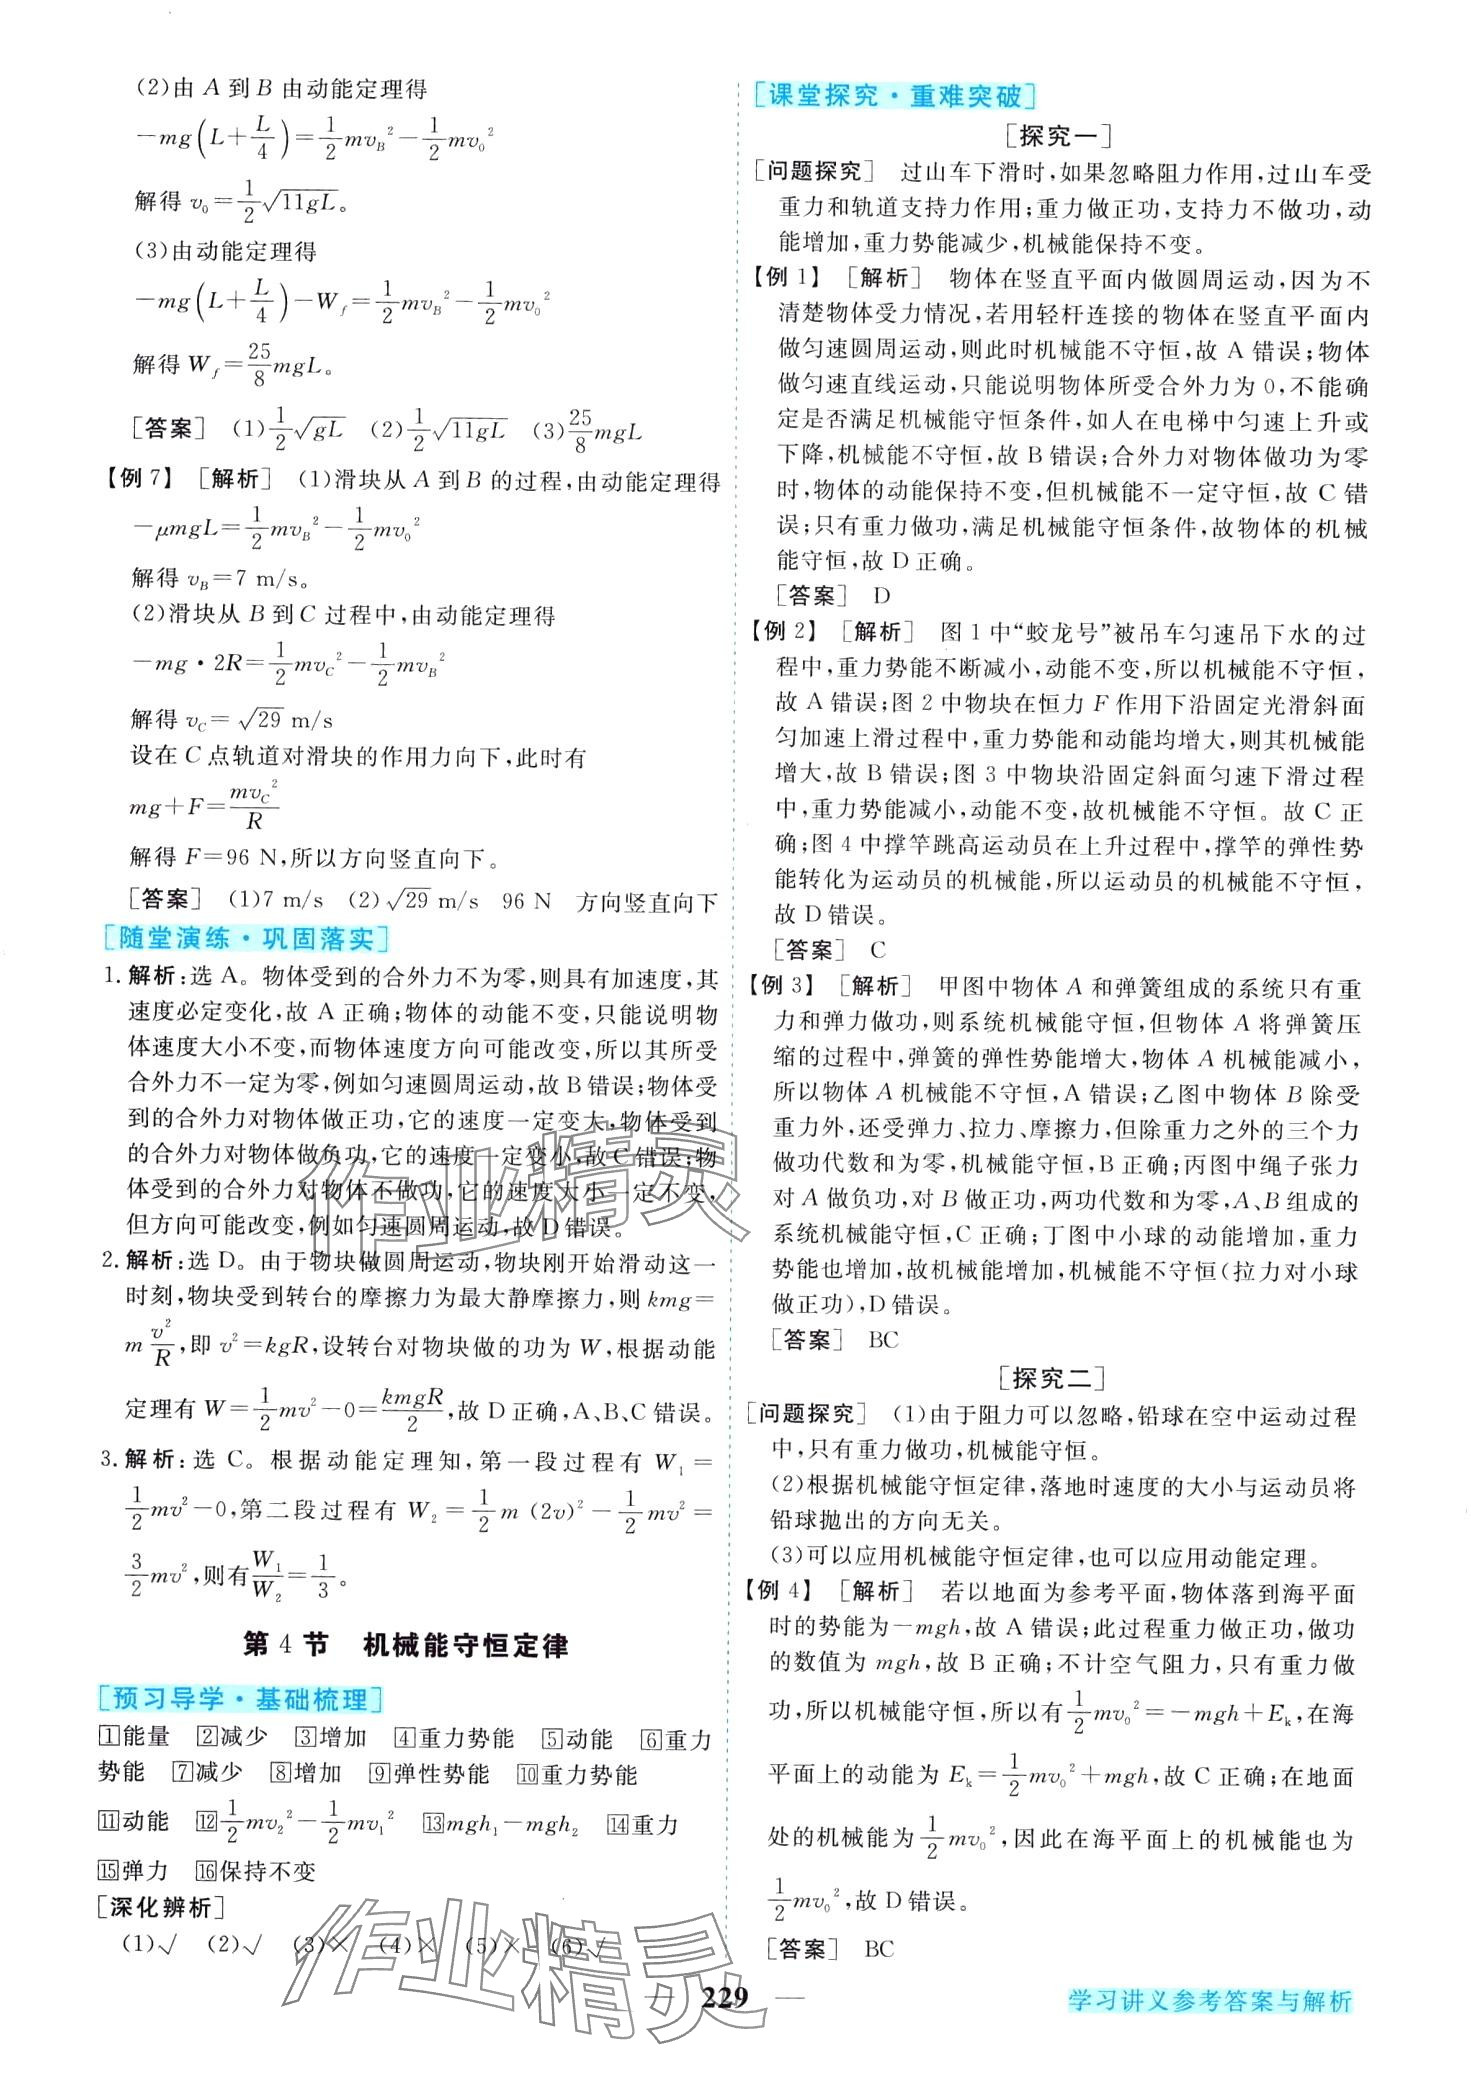 (2)由 A 到 B 由动能定理得
−mg(L+L/4)=1/2mv_B²−1/2mv₀²
解得 v₀=1/2√11gL。
(3)由动能定理得
−mg(L+L/4)−W_f=1/2mv_B²−1/2mv₀²
解得 W_f=25/8mgL。
[答案] (1)1/2√gL (2)1/2√11gL (3)25/8mgL
【例 7】 [解析] (1)滑块从 A 到 B 的过程,由动能定理得
−μmgL=1/2mv_B²−1/2mv₀²
解得 v_B=7 m/s。
(2)滑块从 B 到 C 过程中,由动能定理得
−mg·2R=1/2mv_C²−1/2mv_B²
解得 v_C=√29 m/s
设在 C 点轨道对滑块的作用力向下,此时有
mg+F=mv_C²/R
解得 F=96 N,所以方向竖直向下。
[答案] (1)7 m/s (2)√29 m/s 96 N 方向竖直向下
[随堂演练·巩固落实]
1.解析:选 A。物体受到的合外力不为零,则具有加速度,其
速度必定变化,故 A 正确;物体的动能不变,只能说明物
体速度大小不变,而物体速度方向可能改变,所以其所受
合外力不一定为零,例如匀速圆周运动,故 B 错误;物体受
到的合外力对物体做正功,它的速度一定变大,物体受到
的合外力对物体做负功,它的速度一定变小,故 C 错误;物
体受到的合外力对物体不做功,它的速度大小一定不变,
但方向可能改变,例如匀速圆周运动,故 D 错误。
2.解析:选 D。由于物块做圆周运动,物块刚开始滑动这一
时刻,物块受到转台的摩擦力为最大静摩擦力,则 kmg=
m v²/R,即 v²=kgR,设转台对物块做的功为 W,根据动能
定理有 W=1/2mv²−0=kmgR/2,故 D 正确,A、B、C 错误。
3.解析:选 C。根据动能定理知,第一段过程有 W₁=
1/2mv²−0,第二段过程有 W₂=1/2m(2v)²−1/2mv²=
3/2mv²,则有W₁/W₂=1/3。
第 4 节 机械能守恒定律
[预习导学·基础梳理]
1能量 2减少 3增加 4重力势能 5动能 6重力
势能 7减少 8增加 9弹性势能 10重力势能
11动能 12 1/2mv₂²−1/2mv₁² 13mgh₁−mgh₂ 14重力
15弹力 16保持不变
[深化辨析]
(1)√ (2)√ (3)× (4)× (5)× (6)√
[课堂探究·重难突破]
[探究一]
[问题探究] 过山车下滑时,如果忽略阻力作用,过山车受
重力和轨道支持力作用;重力做正功,支持力不做功,动
能增加,重力势能减少,机械能保持不变。
【例 1】 [解析] 物体在竖直平面内做圆周运动,因为不
清楚物体受力情况,若用轻杆连接的物体在竖直平面内
做匀速圆周运动,则此时机械能不守恒,故 A 错误;物体
做匀速直线运动,只能说明物体所受合外力为 0,不能确
定是否满足机械能守恒条件,如人在电梯中匀速上升或
下降,机械能不守恒,故 B 错误;合外力对物体做功为零
时,物体的动能保持不变,但机械能不一定守恒,故 C 错
误;只有重力做功,满足机械能守恒条件,故物体的机械
能守恒,故 D 正确。
[答案] D
【例 2】 [解析] 图 1 中“蛟龙号”被吊车匀速吊下水的过
程中,重力势能不断减小,动能不变,所以机械能不守恒,
故 A 错误;图 2 中物块在恒力 F 作用下沿固定光滑斜面
匀加速上滑过程中,重力势能和动能均增大,则其机械能
增大,故 B 错误;图 3 中物块沿固定斜面匀速下滑过程
中,重力势能减小,动能不变,故机械能不守恒。故 C 正
确;图 4 中撑竿跳高运动员在上升过程中,撑竿的弹性势
能转化为运动员的机械能,所以运动员的机械能不守恒,
故 D 错误。
[答案] C
【例 3】 [解析] 甲图中物体 A 和弹簧组成的系统只有重
力和弹力做功,则系统机械能守恒,但物体 A 将弹簧压
缩的过程中,弹簧的弹性势能增大,物体 A 机械能减小,
所以物体 A 机械能不守恒,A 错误;乙图中物体 B 除受
重力外,还受弹力、拉力、摩擦力,但除重力之外的三个力
做功代数和为零,机械能守恒,B 正确;丙图中绳子张力
对 A 做负功,对 B 做正功,两功代数和为零,A、B 组成的
系统机械能守恒,C 正确;丁图中小球的动能增加,重力
势能也增加,故机械能增加,机械能不守恒(拉力对小球
做正功),D 错误。
[答案] BC
[探究二]
[问题探究] (1)由于阻力可以忽略,铅球在空中运动过程
中,只有重力做功,机械能守恒。
(2)根据机械能守恒定律,落地时速度的大小与运动员将
铅球抛出的方向无关。
(3)可以应用机械能守恒定律,也可以应用动能定理。
【例 4】 [解析] 若以地面为参考平面,物体落到海平面
时的势能为−mgh,故 A 错误;此过程重力做正功,做功
的数值为 mgh,故 B 正确;不计空气阻力,只有重力做
功,所以机械能守恒,所以有1/2mv₀²=−mgh+E_k,在海
平面上的动能为 E_k=1/2mv₀²+mgh,故 C 正确;在地面
处的机械能为1/2mv₀²,因此在海平面上的机械能也为
1/2mv₀²,故 D 错误。
[答案] BC
229
学习讲义参考答案与解析
作业精灵
作业精灵